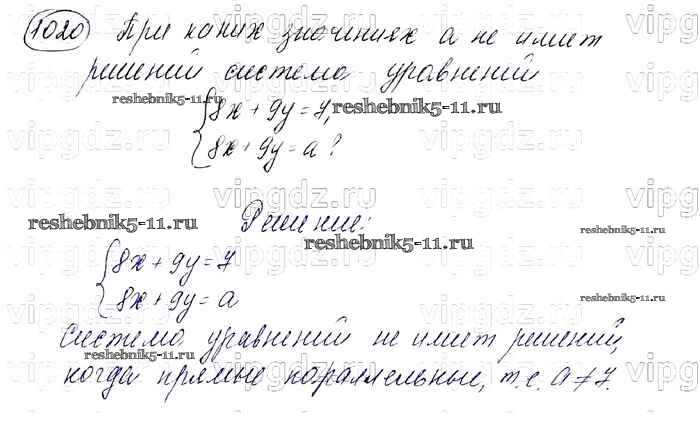 1020 При каких значениях а не имеет
решений система уравнений
reshebnik5-11.ru
{8x + 9y = 7,
reshebnik5-11.ru
8x + 9y = a?
vipgdz.ru
Решение:
reshebnik5-11.ru
reshebnik5-11.ru
{8x + 9y = 7
8x + 9y = a
reshebnik5-11.ru
система уравнений не имеет решений,
reshebnik5-11.ru
когда прямые параллельные, т.е. a ≠ 7.
reshebnik5-11.ru